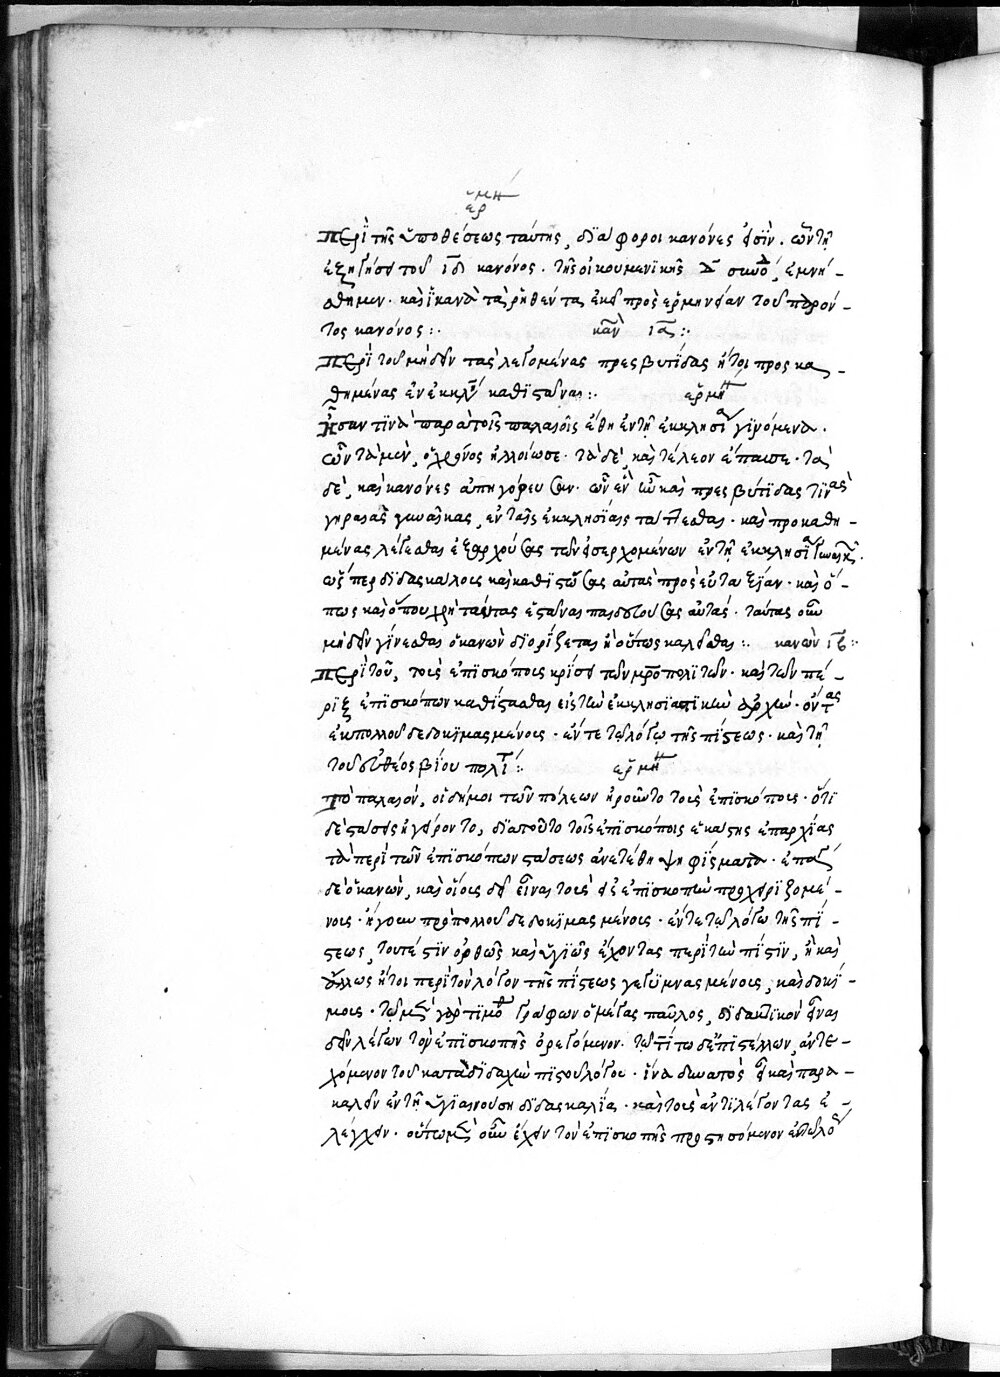 ἑρμη
Περὶ τῆς ὑποθέσεως ταύτης, διάφοροι κανόνες εἰσίν· ὧν τῇ
ἐξηγήσει τοῦ ιδ κανόνος· τῆς οἰκουμενικῆς δ συνόδ, ἐμνή-
σθημεν· καὶ ἱκανὰ τὰ ῥηθέντα ἐκεῖ πρὸς ἑρμηνείαν τοῦ παρόν-
τος κανόνος:· καν ια:·
Περὶ τοῦ μὴ δεῖν τὰς λεγομένας πρεσβύτιδας ἤτοι προκα-
θημένας ἐν ἐκκλ καθίστασθαι:· ἑρμη
Ἦσαν τινὰ παρὰ τοῖς παλαιοῖς ἔθη ἐν τῇ ἐκκλησία γινόμενα·
ὧν τὰ μὲν, ὁ χρόνος ἠλλοίωσε· τὰ δὲ, καὶ τέλεον ἔπαυσε· τὰ
δὲ, καὶ κανόνες ἀπηγόρευσαν· ὧν ἓν ἦν καὶ πρεσβύτιδας τινὰς
γηραιὰς γυναῖκας, ἐν ταῖς ἐκκλησίαις τάττεσθαι· καὶ προκαθη-
μένας λέγεσθαι ἐξαρχούσας τῶν εἰσερχομένων ἐν τῇ ἐκκλησία γυναικ.
ὥσπερ διδασκάλους καὶ καθιστώσας αὐτὰς πρὸς εὐταξίαν· καὶ ὅ-
πως καὶ ὅπου χρὴ ταύτας ἵστασθαι παιδευούσας αὐτάς· ταύτας οὖν
μὴ δεῖν γίνεσθαι ὁ κανὼν διορίζεται ἢ οὕτως καλεῖσθαι:· κανὼν ιβ:·
Περὶ τοῦ, τοὺς ἐπισκόπους κρίσει τῶν μροπολιτῶν· καὶ τῶν πέ-
ριξ ἐπισκόπων καθίστασθαι εἰς τὴν ἐκκλησιαστικὴν ἀρχήν· ὄντας
ἐκ πολλοῦ δεδοκιμασμένους· ἔν τε τῷ λόγῳ τῆς πίστεως· καὶ τῇ
τοῦ εὐθέος βίου πολιτ:· ἑρμη
Τὸ παλαιὸν, οἱ δῆμοι τῶν πόλεων ᾑροῦντο τοὺς ἐπισκόπους· ὅτι
δὲ στάσεις ἠγείροντο, διὰ τοῦτο τοῖς ἐπισκόποις ἑκάστης ἐπαρχίας
τὰ περὶ τῶν ἐπισκόπων στάσεως ἀνετέθη ψηφίσματα· ἐπάγει
δὲ ὁ κανὼν, καὶ οἵους δεῖ εἶναι τοὺς εἰς ἐπισκοπὴν προχειριζομέ-
νους· ἤγουν πρὸ πολλοῦ δεδοκιμασμένους· ἔν τε τῷ λόγῳ τῆς πί-
στεως, τουτέστιν ὀρθῶς καὶ ὑγιῶς ἔχοντας περὶ τὴν πίστιν, ἢ καὶ
ἄλλως ἤτοι περὶ τὸν λόγον τῆς πίστεως γεγυμνασμένους, καὶ δοκί-
μους· τῷ μὲν γὰρ τιμοθ γράφων ὁ μέγας παῦλος, διδακτικὸν εἶναι
δεῖν λέγων τὸν ἐπισκοπῆς ὀρεγόμενον· τῷ τίτω δ' ἐπιστέλλων, ἀντε-
χόμενον τοῦ κατὰ διδαχὴν πιστοῦ λόγου· ἵνα δυνατὸς εἶ καὶ παρα-
καλεῖν ἐν τῇ ὑγιαινούση διδασκαλία· καὶ τοὺς ἀντιλέγοντας ἐ-
λέγχειν· οὕτω μὲν οὖν ἔχειν τὸν ἐπισκοπῆς προστησόμενον ἐν τῷ λό